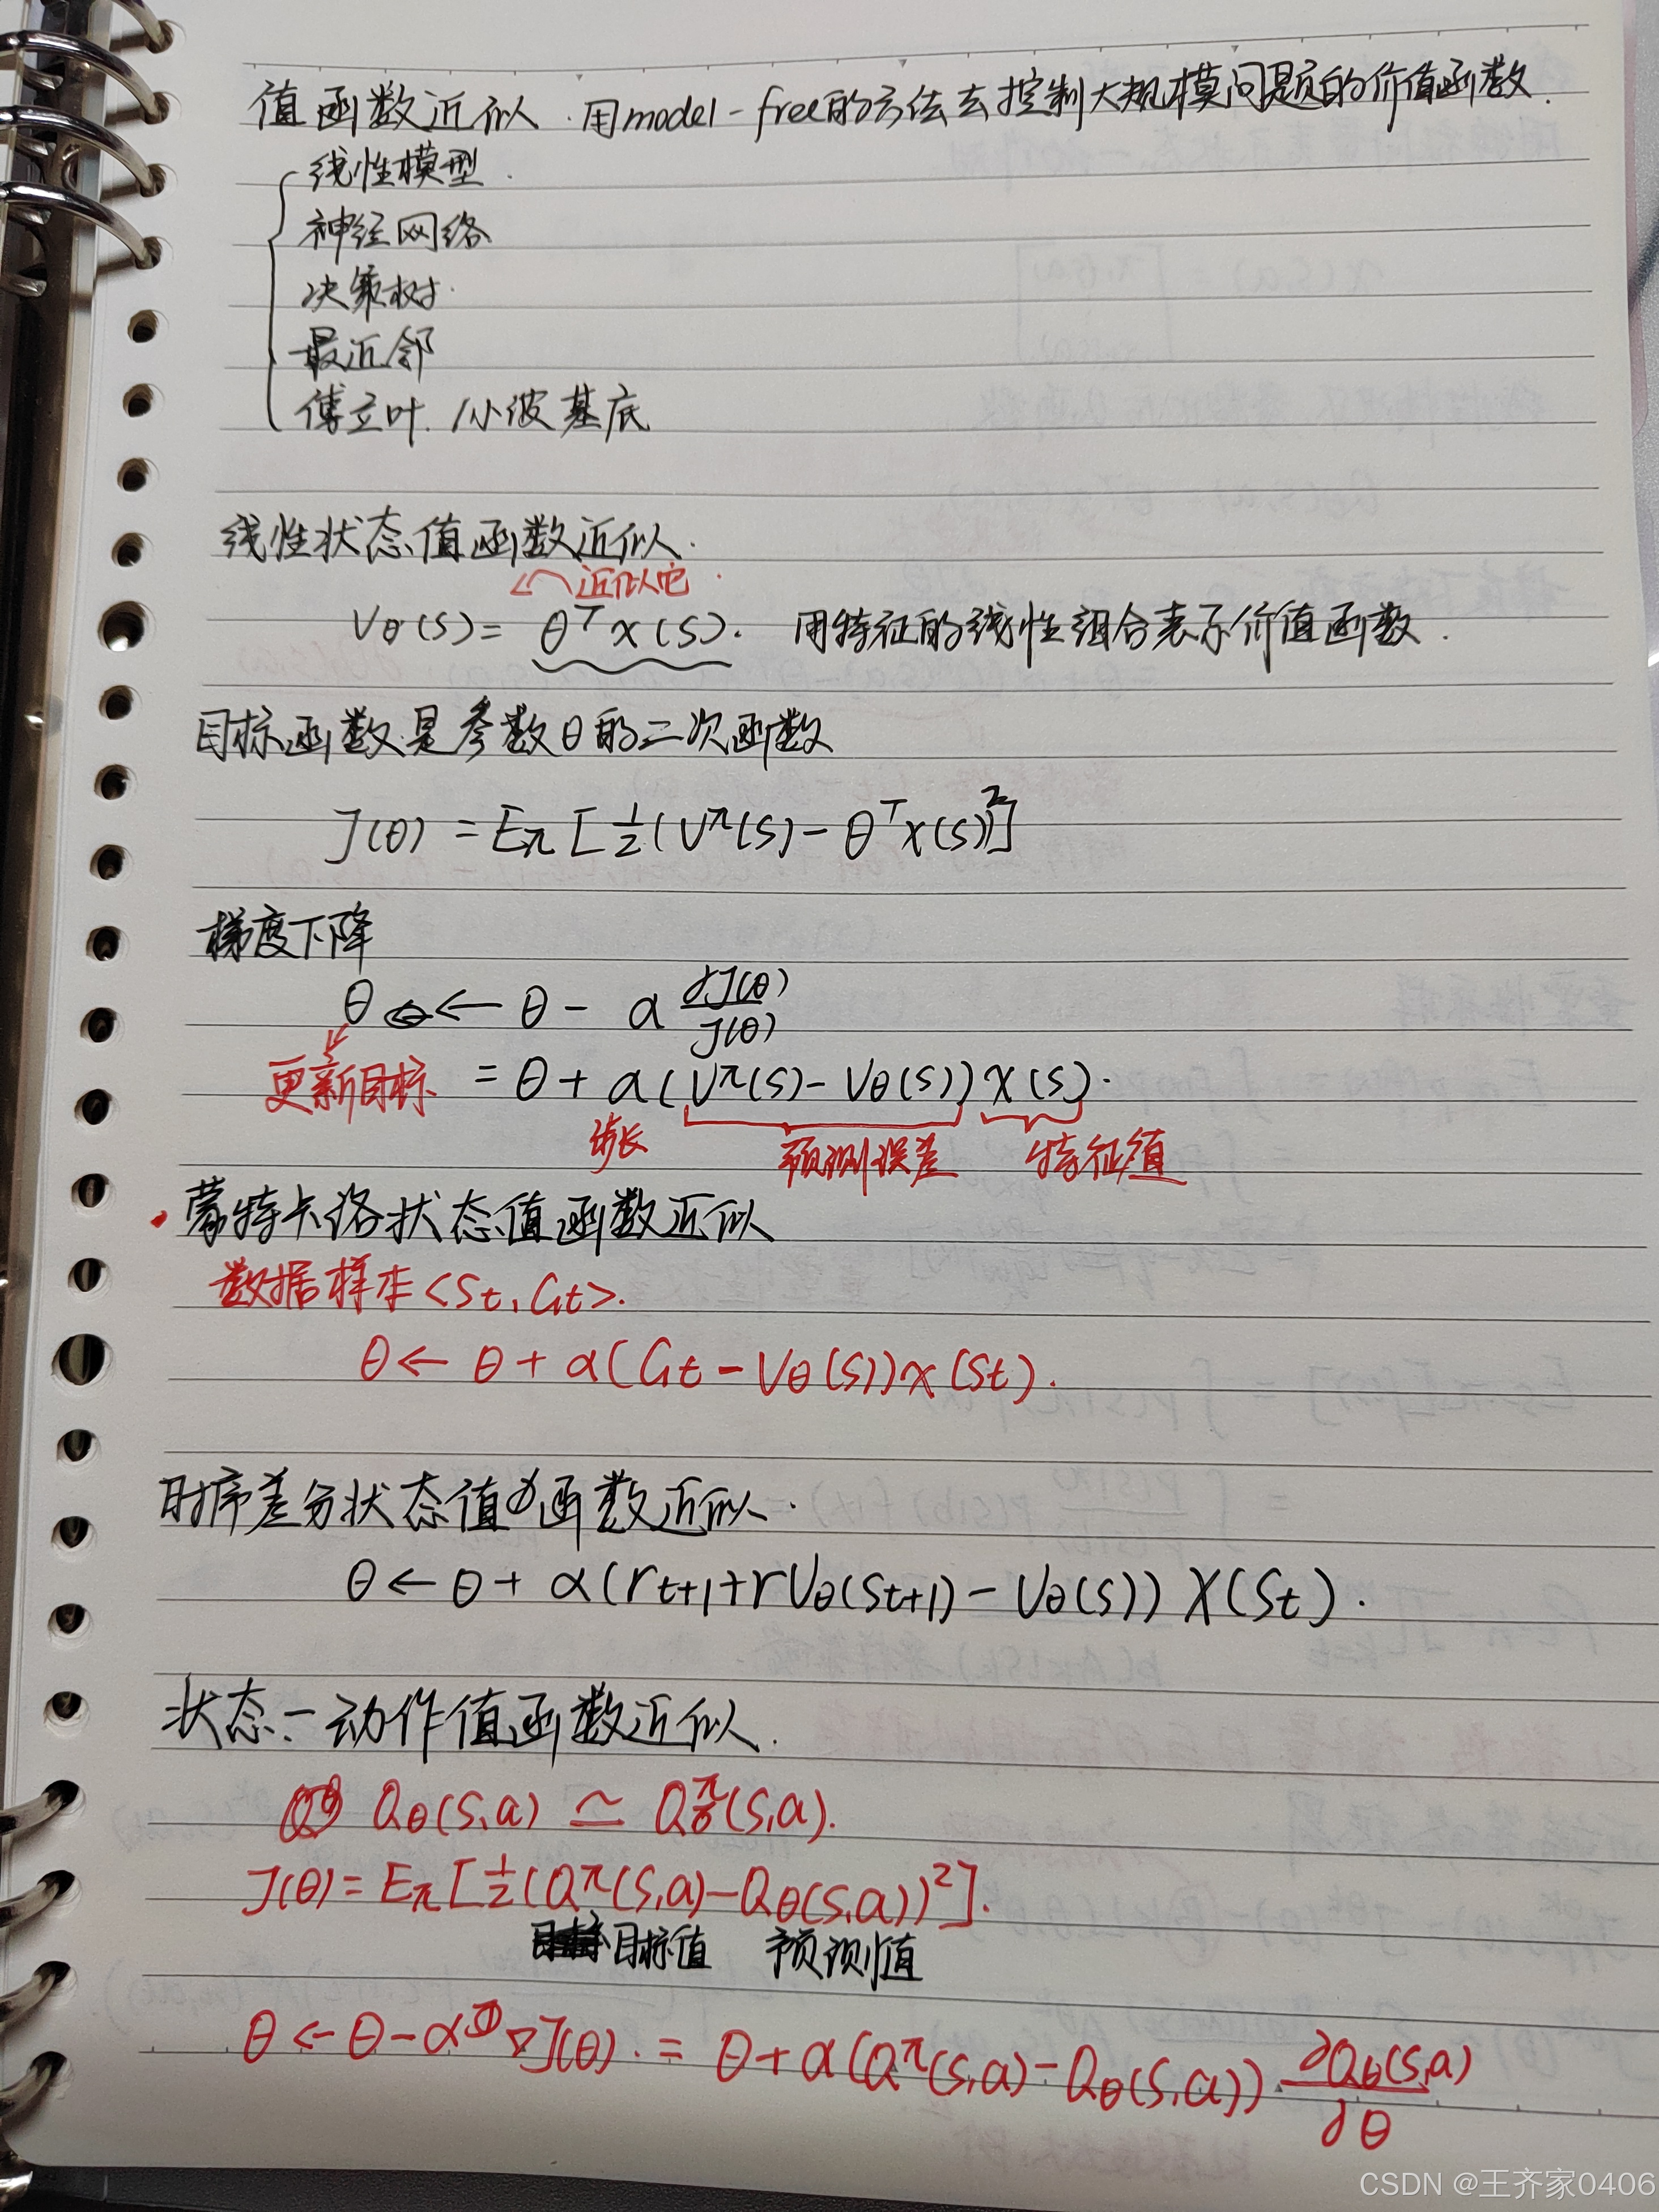 值函数近似. 用model-free的方法去控制大规模问题的价值函数.
线性模型.
神经网络
决策树.
最近邻
傅立叶/小波基底
线性状态值函数近似.
近似它
Vθ(s)= θᵀx(s). 用特征的线性组合表示价值函数.
目标函数是参数θ的二次函数
J(θ) = Eπ[½(Vπ(s)-θᵀx(s))²]
梯度下降
θ ← θ - α ∂J(θ)/J(θ)
更新目标 = θ + α(Vπ(s)-Vθ(s))x(s).
步长 预测误差 特征值
蒙特卡洛状态值函数近似
数据样本<St, Gt>.
θ ← θ + α(Gt-Vθ(s))x(St).
时序差分状态值函数近似.
θ ← θ + α(rt+1+rVθ(St+1)-Vθ(s))X(St).
状态-动作值函数近似.
Qθ(s,a) ≃ Qπ(s,a).
J(θ)=Eπ[½(Qπ(s,a)-Qθ(s,a))²].
目标值 预测值
θ ← θ-α∇J(θ). = θ+α(Qπ(s,a)-Qθ(s,a)) ∂Qθ(s,a)/∂θ
CSDN @王齐家0406